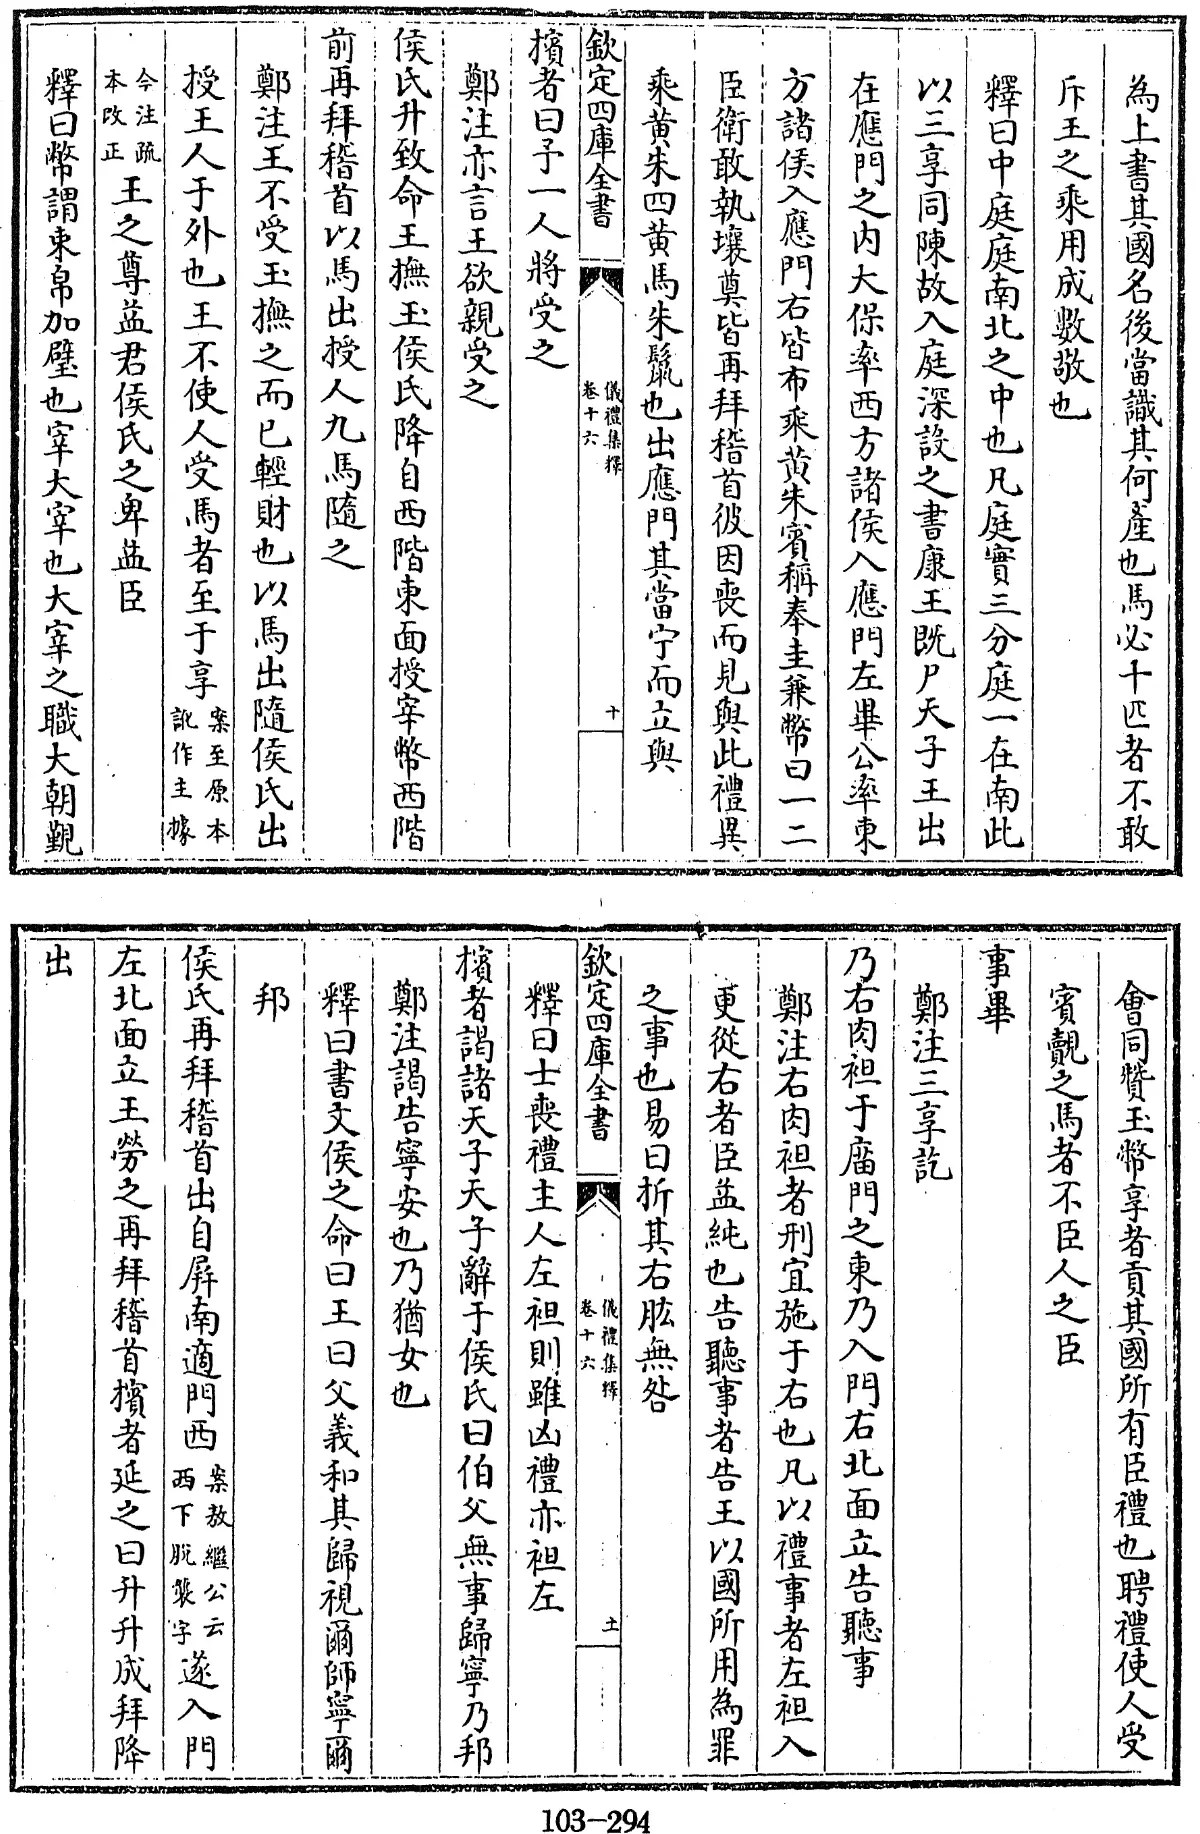 為上書其國名後當識其何產也馬必十匹者不敢
斥王之乘用成數敬也
釋曰中庭庭南北之中也凡庭實三分庭一在南此
以三享同陳故入庭深設之書康王既尸天子王出
在應門之內大保率西方諸侯入應門左畢公率東
方諸侯入應門右皆布乘黃朱賓稱奉圭兼幣曰一二
臣衛敢執壤奠皆再拜稽首彼因喪而見與此禮異
乘黃朱四黃馬朱鬛也出應門其當宁而立與
欽定四庫全書
儀禮集釋
卷十六
十
擯者曰予一人將受之
鄭注亦言王欲親受之
侯氏升致命王撫玉侯氏降自西階東面授宰幣西階
前再拜稽首以馬出授人九馬隨之
鄭注王不受玉撫之而已輕財也以馬出隨侯氏出
授王人于外也王不使人受馬者至于享案至原本訛作主據
今注疏本改正王之尊益君侯氏之卑益臣
釋曰幣謂束帛加璧也宰大宰也大宰之職大朝覲
會同贊玉幣享者貢其國所有臣禮也聘禮使人受
賓覿之馬者不臣人之臣
事畢
鄭注三享訖
乃右肉袒于廟門之東乃入門右北面立告聽事
鄭注右肉袒者刑宜施于右也凡以禮事者左袒入
更從右者臣益純也告聽事者告王以國所用為罪
之事也易曰折其右肱無咎
欽定四庫全書
儀禮集釋
卷十六
土
釋曰士喪禮主人左袒則雖凶禮亦袒左
擯者謁諸天子天子辭于侯氏曰伯父無事歸寧乃邦
鄭注謁告寧安也乃猶女也
釋曰書文侯之命曰王曰父義和其歸視爾師寧爾
邦
侯氏再拜稽首出自屏南適門西案敖繼公云西下脫襲字遂入門
左北面立王勞之再拜稽首擯者延之曰升升成拜降
出
103-294